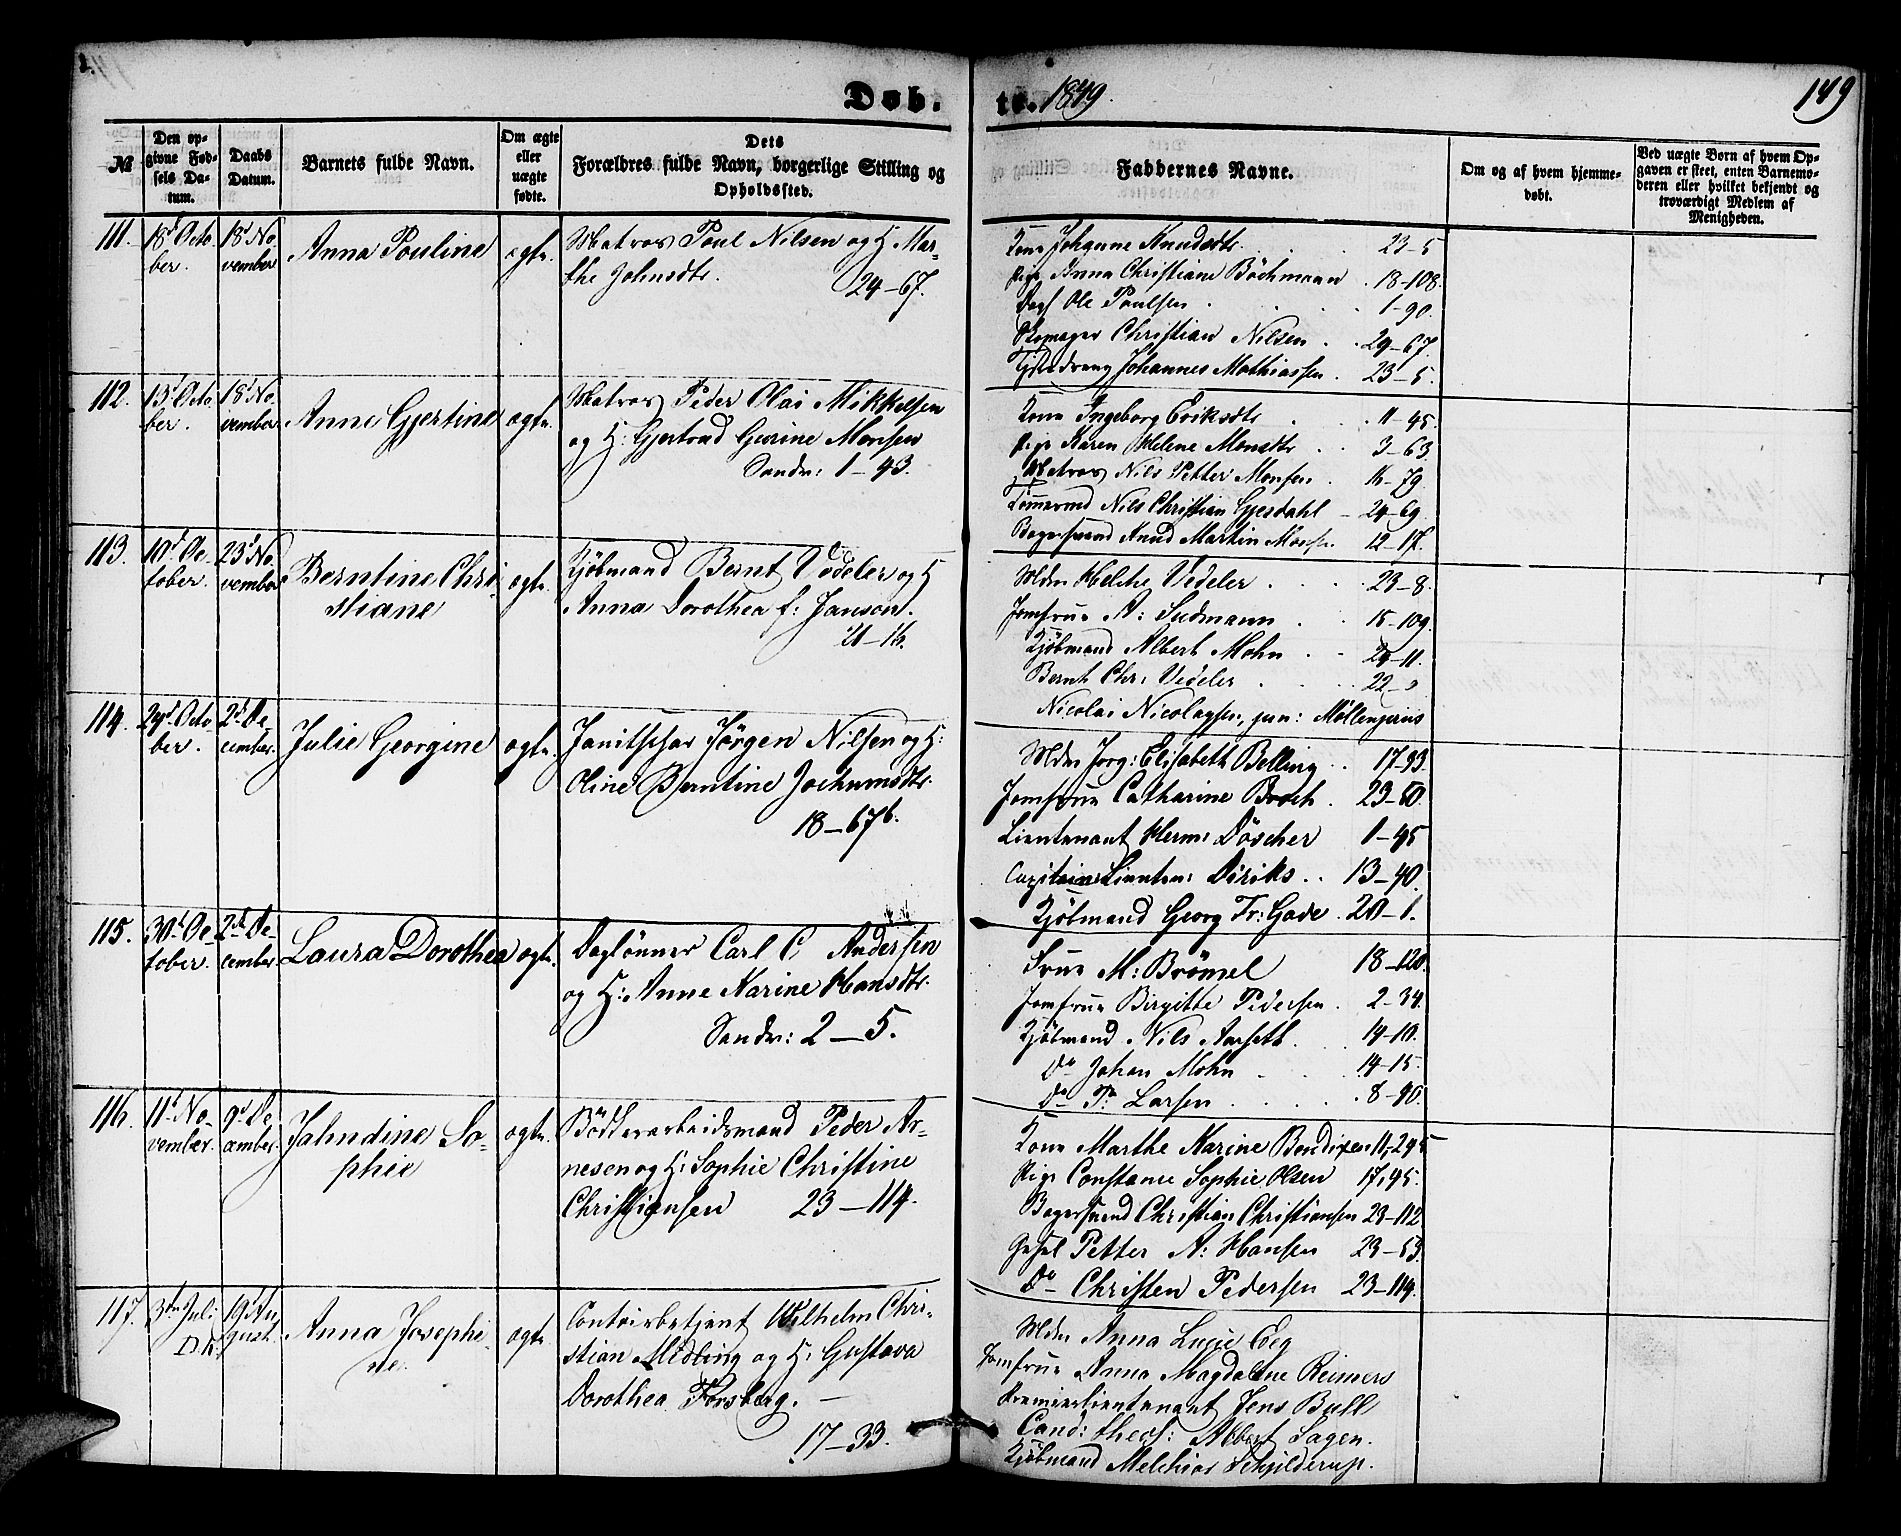 Døb-
te. 1849.
149
№
Den op-
givne Fød-
sels Da-
tum.
Daabs
Datum.
Barnets fulde Navn.
Om ægte
eller
uægte
fødte.
Dets
Forældres fulde Navn, borgerlige Stilling og
Opholdssted.
Faddernes Navne.
Om og af hvem hjemme-
døbt.
Ved uægte Børn af hvem Op-
gaven er skeet, enten Barnemo-
deren eller hvilket bekjendt og
troværdigt Medlem af
Menigheden.
111.
18d Octo
ber.
18d No
vember
Anna Pouline
ægte.
Matros Poul Nilsen og H. Mar-
the Johnsdtr.
24-67.
Kone Johanne Knudsdtr. 23-5
Pige Anna Christiane Böchmann 18-108.
Ole Poulsen 1-90.
Skomager Christian Nilsen 29-67.
Johannes Mathiassen 23-5.
112.
13d Octo
ber.
18d No
vember
Anne Gjertine
ægte.
Matros Peder Olai Mikkelsen
og H: Gjertrud Geurine Monsen
Sandv: 1-43.
Kone Ingeborg Eriksdtr 11-45
Pige Karen Helene Monsdtr 3-63.
Matros Nils Petter Monsen 16-79
Tømmermd Nils Christian Gjesdahl 24-69.
Bagersvend Knud Martin Monsen 12-17.
113.
10d Oc-
tober.
23d No
vember
Berntine Chri-
stiane
ægte.
Kjöbmand Bernt Vedeler og H
Anna Dorothea f: Janson.
21-16.
Mdm Helche Vedeler 23-8.
Jomfrue A: Sudmann 15-109.
Kjöbmand Albert Mohn 24-11.
Bernt Chr: Vedeler 22-
Nicolai Nicolaysen, jun: Möllengriis
114.
29d Octo-
ber.
2d De
cember.
Julie Georgine
ægte.
Janitschar Jörgen Nilsen og H:
Oline Berntine Jochumsdtr.
18-67b.
Mdm Jorg: Elisabeth Belling 17-93.
Jomfrue Catharine Broch. 23-50.
Lieutenant Herm: Döscher 1-95
Capitain Lieuten: Diriks 13-40.
Kjöbmand Georg Fr: Gade. 20-1.
115.
30d Oc-
tober.
2d De-
cember.
Laura Dorothea
ægte.
Daglönner Carl C Andersen
og H: Anne Karine Hansdtr.
Sandv: 2-5.
Frue M: Brömel 18-120.
Jomfrue Birgitte Pedersen. 2-34.
Kjöbmand Nils Aarseth. 14-10.
Do Johan Mohn 14-15.
Do P: Larsen 8-90.
116.
11d No-
vember.
9d De-
cember.
Jahndine So-
phie
ægte.
Bödkerarbeidsmand Peder Ar-
nesen og H: Sophie Christine
Christiansen 23-114.
Kone Marthe Karine Bendixen 11-295
Pige Constance Sophie Olsen 17,95.
Bagersvend Christian Christiansen 23-112
Gesel Petter A: Hansen 23-53.
Do Christen Pedersen 23-114.
117.
3die Juli
D.K.
19d Au
gust.
Anna Josephi-
ne.
ægte.
Contoirbetjent Wilhelm Chri-
stian Midling og H: Gustava
Dorothea Forsberg.
17-33.
Mdm Anna Lucie Eeg
Jomfrue Anna Magdalene Reimers
Premierlieutenant Jens Bull
Cand: theol: Albert Sagen.
Kjöbmand Melchior Schjelderup.